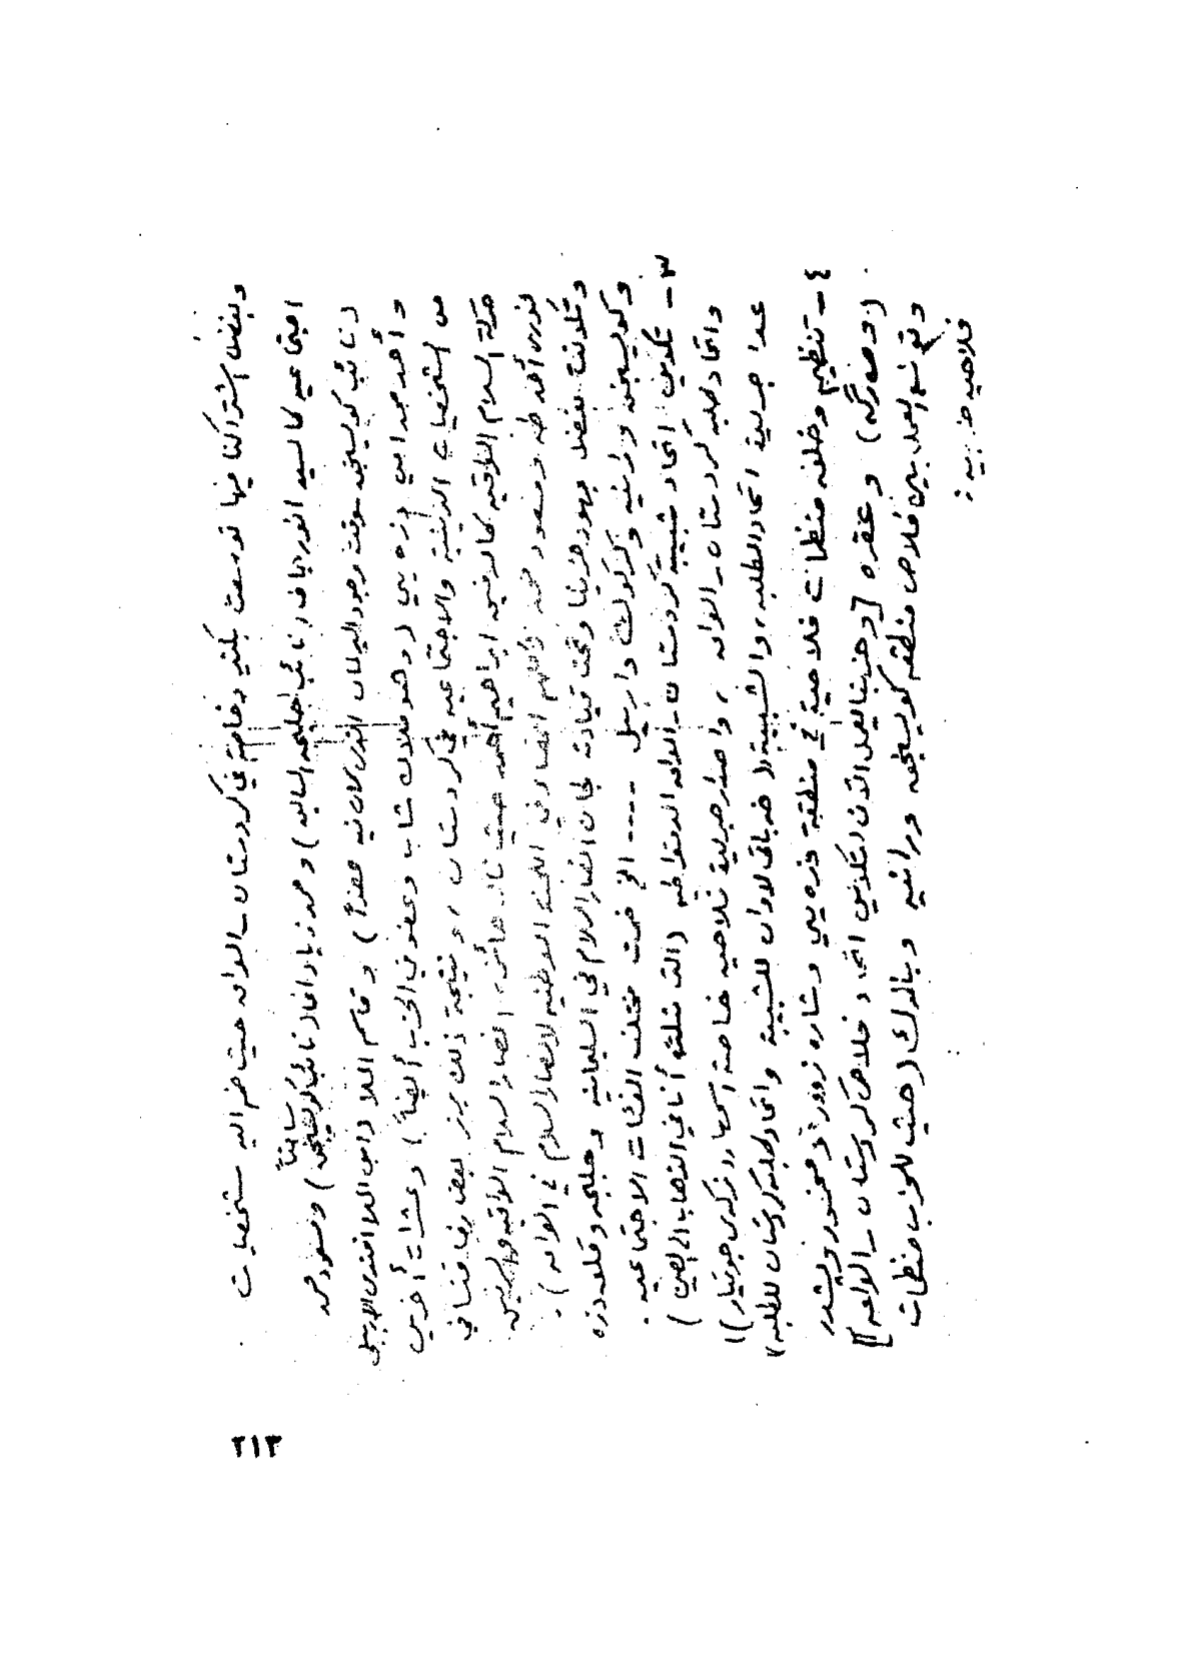 وبفضل اشتراكنا فيها توسعت بكثير وخاصة في كردستان ـ العراق حيث ضم اليه شخصيات
اجتماعية كالسيد انور جاف (نائب حلبجه السابق) ومحمد زياد اغا (نائب كويسنجق سابقاً) ومسعود محمد
(نائب كويسنجق موقت وجود البرلمان الذي كان فيه عضواً) وقاسم الملا
وأحمد محمد امين دزه يي (وهو ملاك شاب وعضو في الحزب أيضاً) وعشرات أخرين
من الشخصيات الدينية والاجتماعية في كردستان ، ونتيجة ذلك برز بعض رفاقنا في
حركة السلام العراقيه كالرفيق ابراهيم أحمد حيث نائب انصار السلام
نوري أحمد طه ومسعود محمد وكلهم اعضاء في اللجنة الوطنيه لانصار السلام في العراق) .
وتكونت بفضل جهود حزبنا وتحت قيادته لجان انصار السلام في السليمانيه وحلبجه وقلعه دزه
وكويسنجق ورانيه وكركوك واربيل .... الخ ضمت مختلف الفئات الاجتماعيه .
٣ ـ تكوين اتحاد شبيبة كردستان ـ العراق الديمقراطي (التى مثلت أنا في الذهاب الى الصين)
واتحاد طلبه كردستان ـ العراق ، واصدار جريدة فلاحيه خاصة اسمها ((نركه ى جوتيار))
عدا جريدة اتحاد الطلبه ، والشبيبة (( خه باتى لاوان للشبيبة واتحاد طلبه كردستان للطلبه ))
٤ ـ تنظيم وخلق منظمات فلاحية في منطقة دزه يي وشاره زوور و مخمور وپشدر
( ) وعقره [وحزبنا يعمل الآن لتكوين اتحاد فلاحى كردستان ـ العراق]
وتوسع العمل بين فلاحى منطقه كويسنجق ورانيه وبالك (حيث للحزب منظمات
فلاحيه حزبيه :
٢١٣